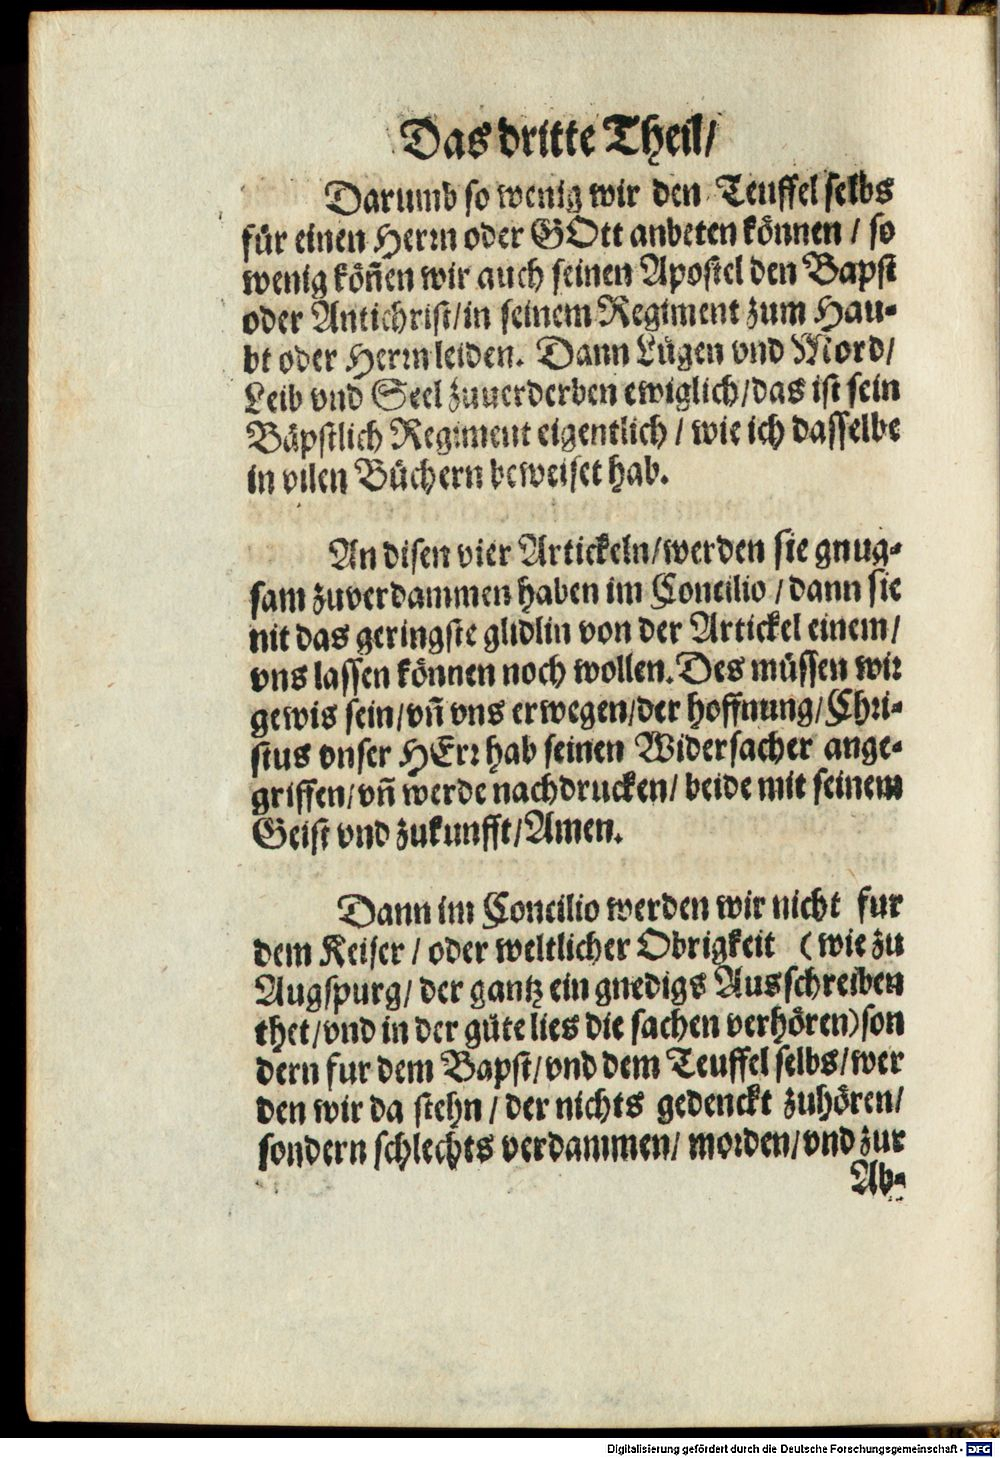 Das dritte Theil/
Darumb so wenig wir den Teuffel selbs
für einen Herrn oder GOtt anbeten können / so
wenig köñen wir auch seinen Apostel den Bapst
oder Antichrist/in seinem Regiment zum Hau-
bt oder Herrn leiden. Dann Lügen vnd Mord/
Leib vnd Seel zuuerderben ewiglich/das ist sein
Bäpstlich Regiment eigentlich / wie ich dasselbe
in vilen Büchern beweiset hab.
An disen vier Artickeln/werden sie gnug-
sam zuverdammen haben im Concilio / dann sie
nit das geringste glidlin von der Artickel einem/
vns lassen können noch wollen. Des müssen wir
gewis sein/vñ vns erwegen/der hoffnung/Chri-
stus vnser HErr hab seinen Widersacher ange-
griffen/vñ werde nachdrucken/ beide mit seinem
Geist vnd zukunfft/Amen.
Dann im Concilio werden wir nicht fur
dem Keiser / oder weltlicher Obrigkeit (wie zu
Augspurg/ der gantz ein gnedigs Ausschreiben
thet/vnd in der güte lies die sachen verhören)son
dern fur dem Bapst/vnd dem Teuffel selbs/wer
den wir da stehn / der nichts gedenckt zuhören/
sondern schlechts verdammen/ morden/vnd zur
Ab-
Digitalisierung gefördert durch die Deutsche Forschungsgemeinschaft - DFG